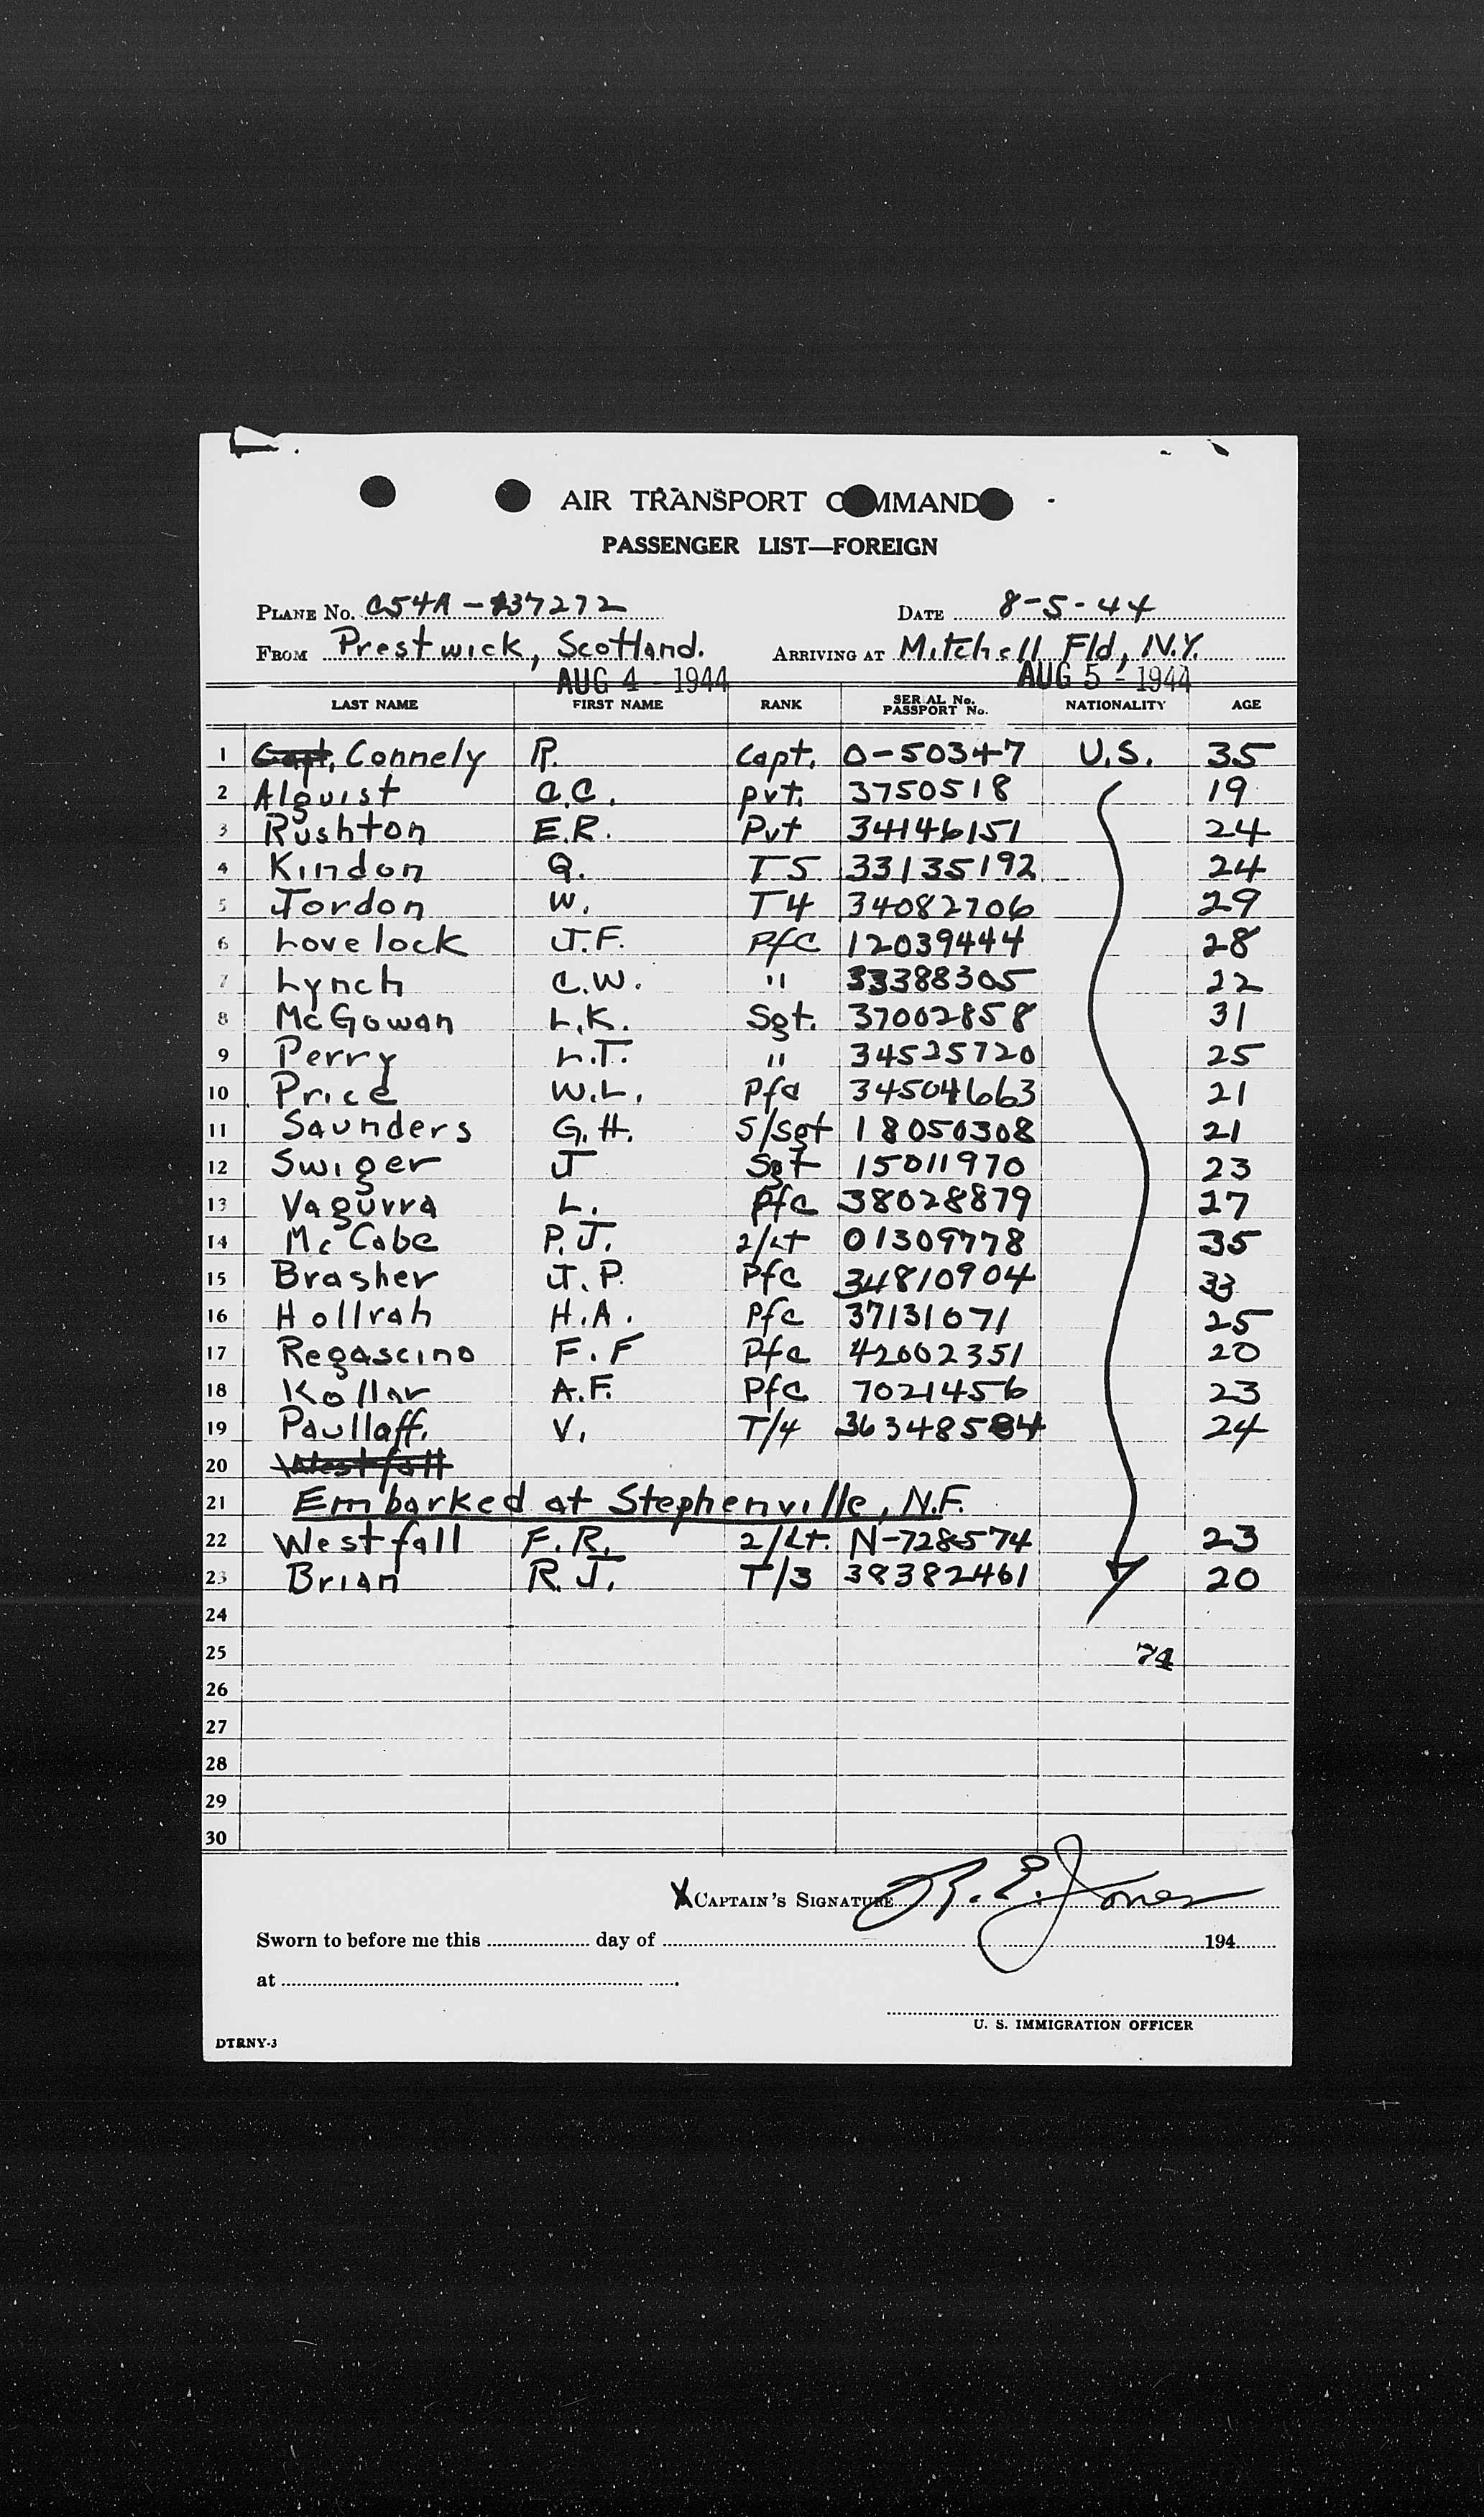 AIR TRANSPORT COMMAND
PASSENGER LIST—FOREIGN
PLANE No. C54A-137272 DATE 8-5-44
FROM Prestwick, Scotland. ARRIVING AT Mitchell Fld, N.Y.
AUG 4 - 1944 AUG 5 - 1944
LAST NAME FIRST NAME RANK SERIAL No. PASSPORT No. NATIONALITY AGE
1 Capt. Connely R. Capt. O-50347 U.S. 35
2 Alquist C.C. pvt. 3750518 19
3 Rushton E.R. Pvt 34146151 24
4 Kindon Q. T5 33135192 24
5 Jordon W. T4 34082706 29
6 Lovelock J.F. Pfc 12039444 28
7 Lynch C.W. " 33388305 22
8 McGowan L.K. Sgt. 37002858 31
9 Perry L.T. " 34525720 25
10 Price W.L. Pfc 34504663 21
11 Saunders G.H. S/Sgt 18050308 21
12 Swiger J Sgt 15011970 23
13 Vagurra L. Pfc 38028879 27
14 McCabe P.J. 2/Lt 01309778 35
15 Brasher J.P. Pfc 34810904 33
16 Hollrah H.A. Pfc 37131071 25
17 Regascino F.F Pfc 42002351 20
18 Kollar A.F. Pfc 7021456 23
19 Paullaff. V. T/4 36348584 24
20 Westfall
21 Embarked at Stephenville, N.F.
22 Westfall F.R. 2/Lt. N-728574 23
23 Brian R.J. T/3 38382461 20
24
25 74
26
27
28
29
30
X CAPTAIN'S SIGNATURE R. E. Jones
Sworn to before me this day of 194
at
U. S. IMMIGRATION OFFICER
DTRNY-3